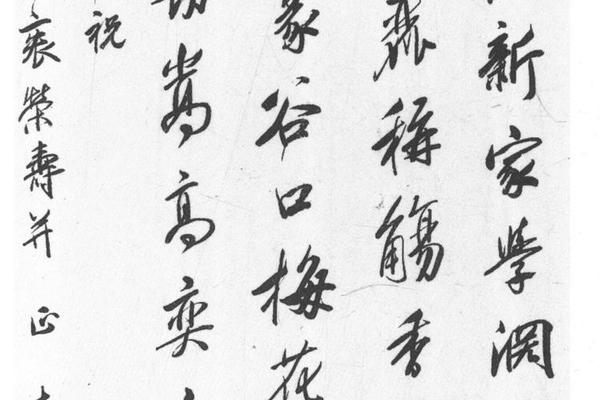 新家學淵
稱觴香
谷口梅花
嵩高奕
祝
榮壽并正